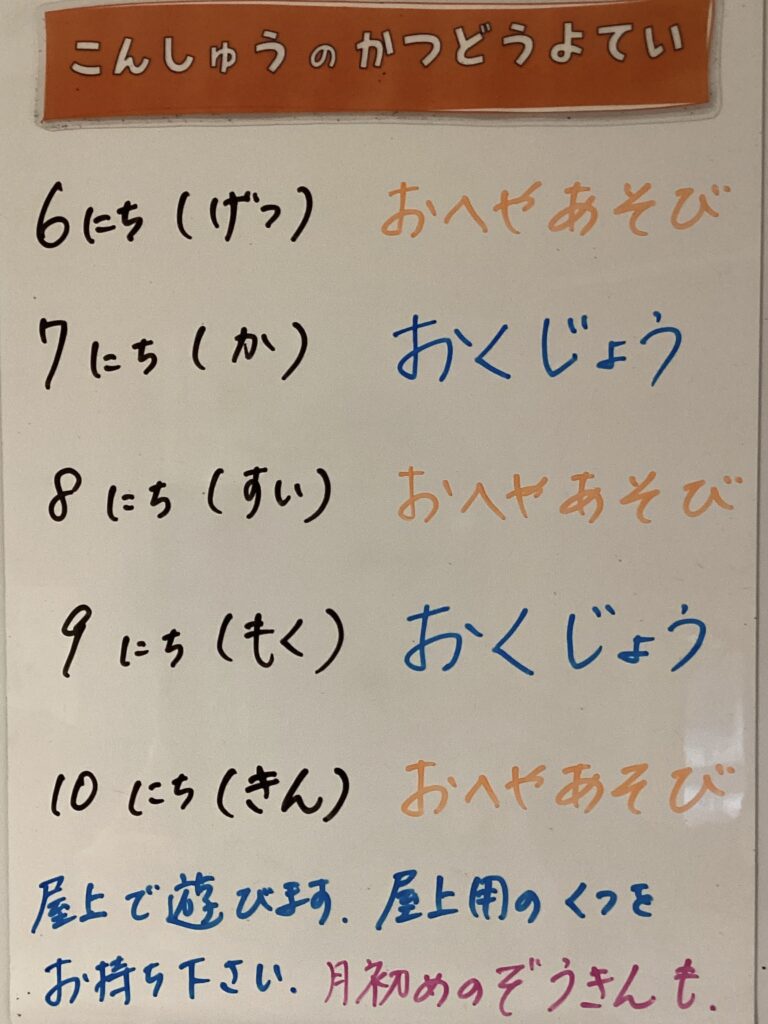 こんしゅうのかつどうよてい
6にち(げつ) おへやあそび
7にち(か) おくじょう
8にち(すい) おへやあそび
9にち(もく) おくじょう
10にち(きん) おへやあそび
屋上で遊びます. 屋上用のくつを
お持ち下さい. 月初めのぞうきんも.